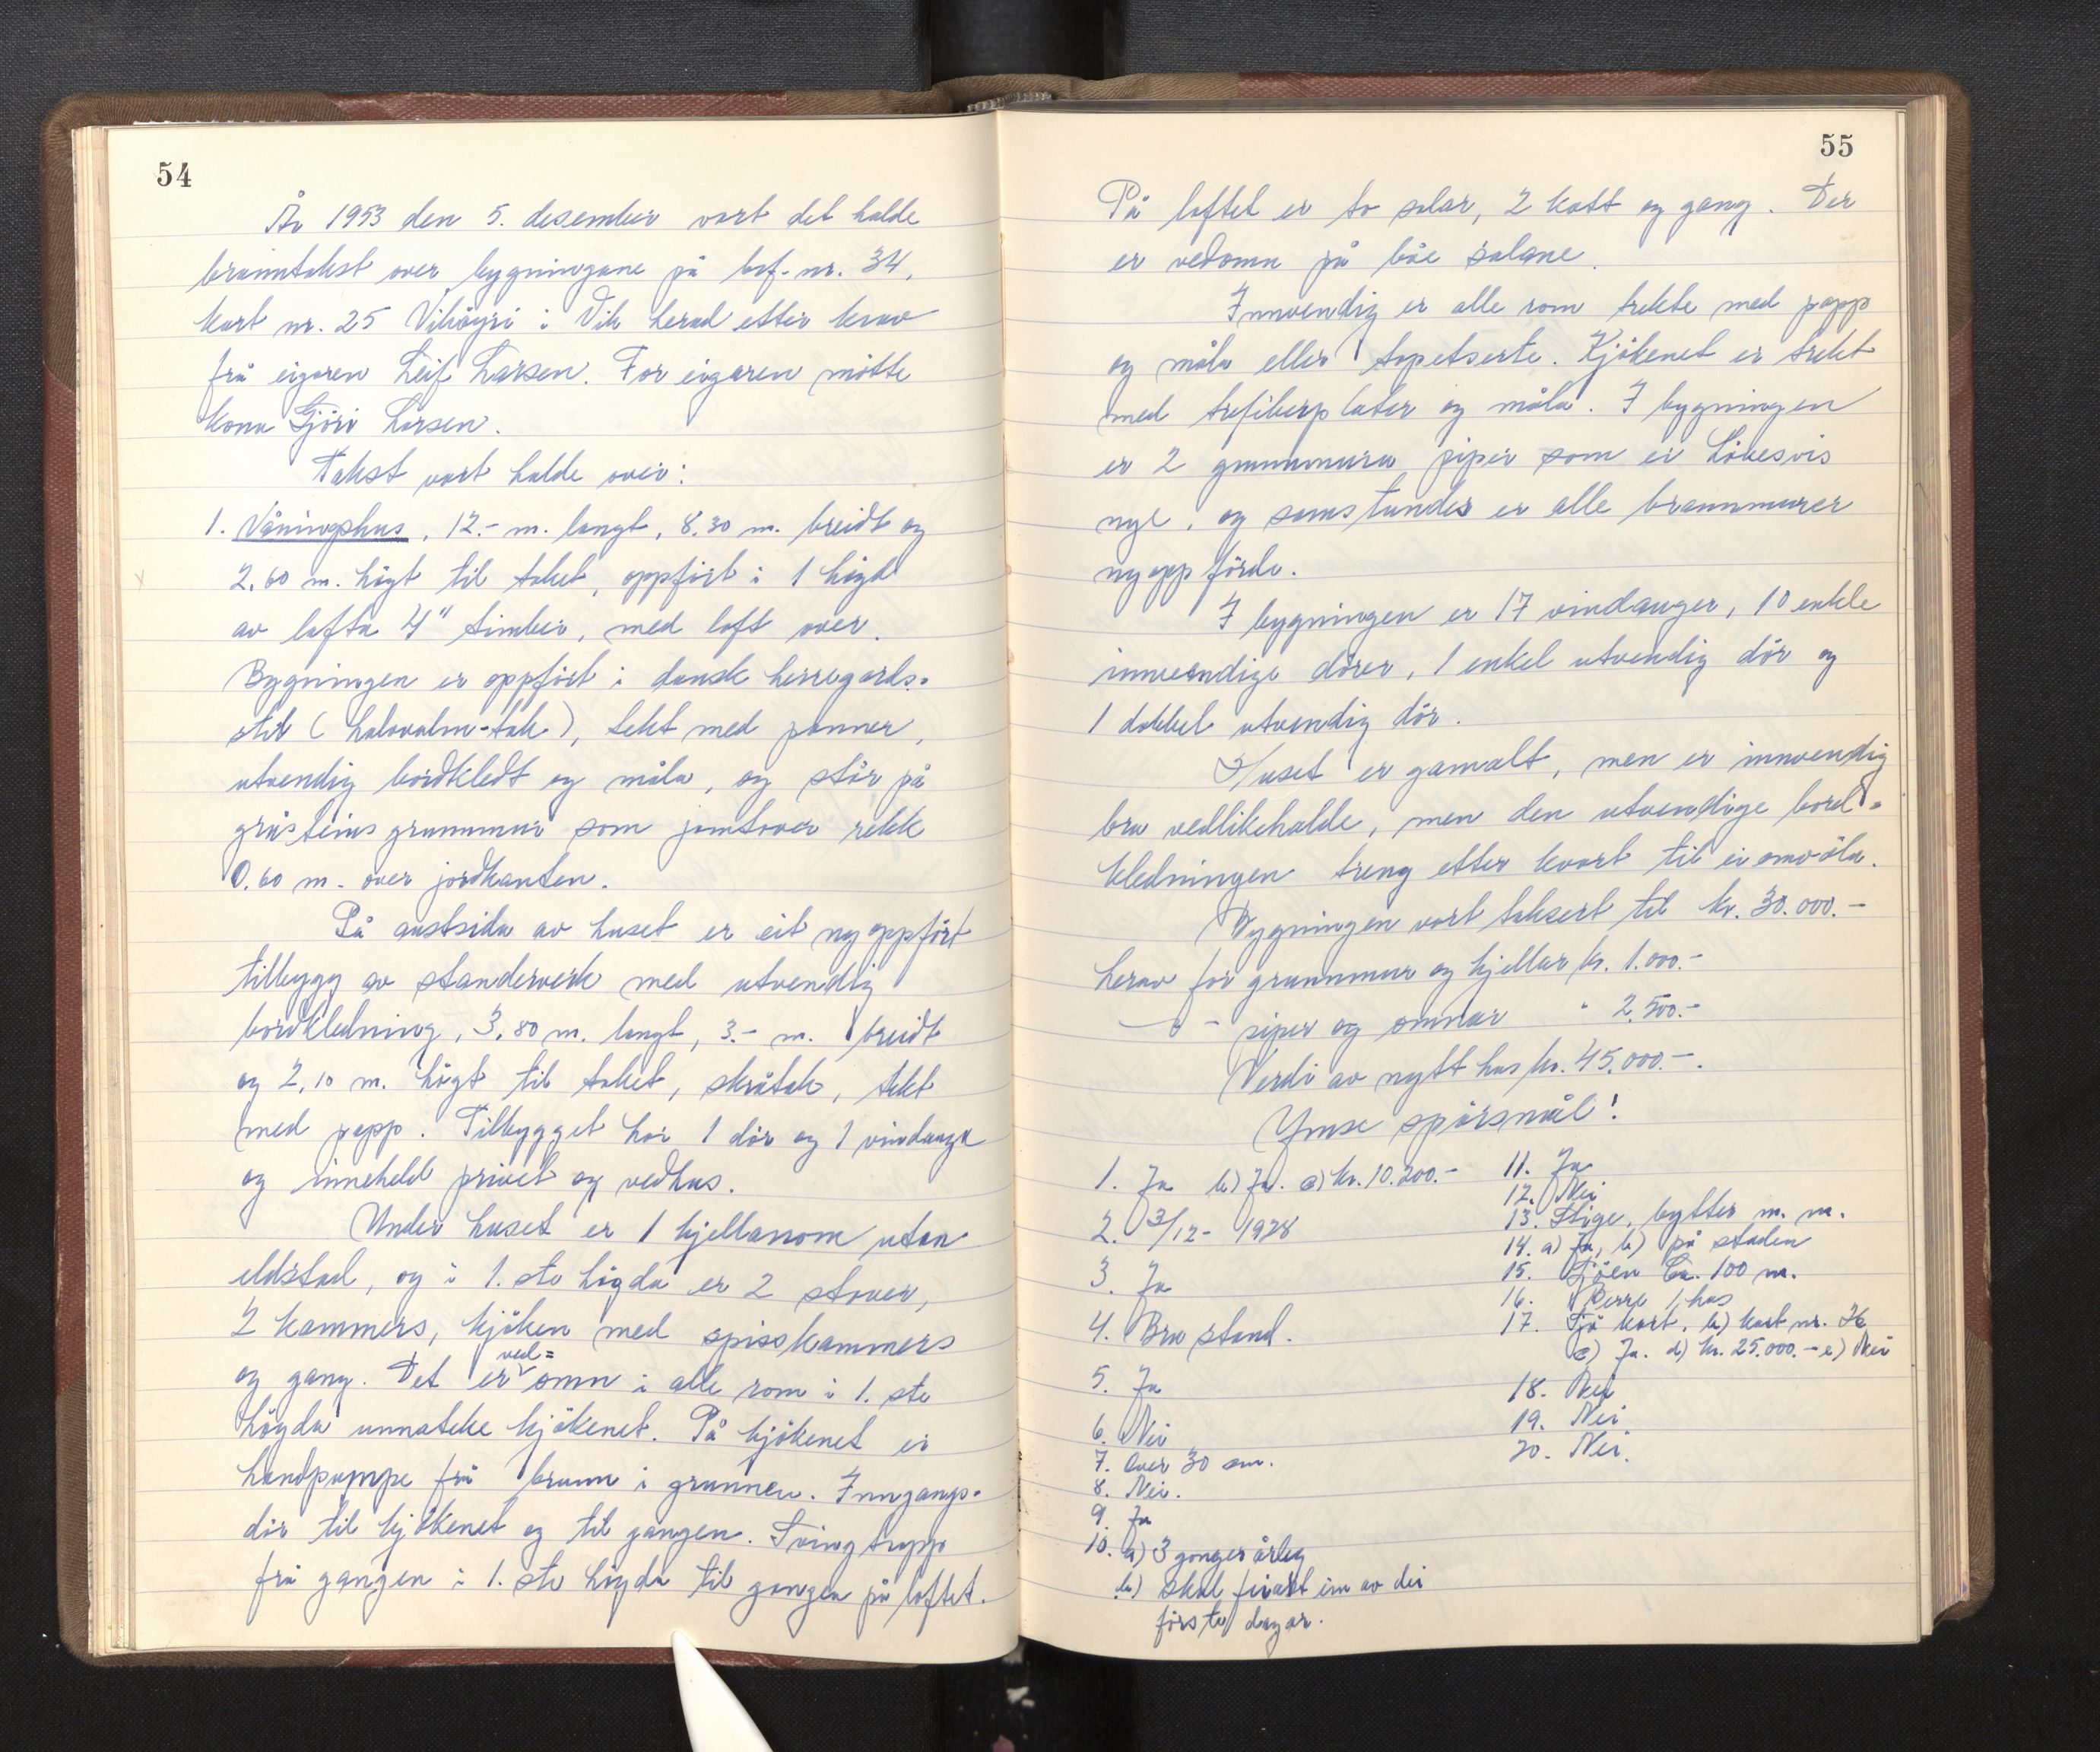 54
År 1953 den 5. desember vart det halde
branntakst over bygningane på bof.-nr. 34,
kart nr. 25 Vikøyri i Vik herad etter krav
frå eigaren Leif Larsen. For eigaren møtte
kona Gjöri Larsen.
Takst vart halde over:
1. Våningshus, 12.- m. langt, 8.30 m. breidt og
2.60 m. högt til taket, oppfört i 1 högd
av lafta 4" timber, med loft over.
Bygningen er oppfört i dansk herregards-
stil (halvvalm-tak), tekt med panner,
utvendig bordkledt og måla, og står på
gråsteins grunnmur som jamtover rekk
0.60 m. over jordkanten.
På austsida av huset er eit nyoppfört
tilbygg av standerverk med utvendig
bordkledning, 3.80 m. langt, 3.- m. breidt
og 2,10 m. högt til taket, skråtak, tekt
med papp. Tilbygget har 1 dör og 1 vindauga
og inneheld privet og vedhus.
Under huset er 1 kjellarrom utan
eldstad, og i 1. ste högda er 2 stover,
2 kammers, kjöken med spisskammers
og gang. Det er ved= omn i alle rom i 1. ste
högda unnateke kjökenet. På kjökenet er
handpumpe frå brunn i grunnen. Inngangs-
dör til kjökenet og til gangen. Svingtrapp
frå gangen i 1. ste högda til gangen på loftet.
55
På loftet er to salar, 2 kott og gang. Der
er vedomn på båe salane.
Innvendig er alle rom trekte med papp
og måla eller tapetserte. Kjökenet er trekt
med trefiberplater og måla. I bygningen
er 2 grunnmura piper som er hövesvis
nye, og samstundes er alle brannmurer
nyoppförde.
I bygningen er 17 vindauger, 10 enkle
innvendige dörer, 1 enkel utvendig dör og
1 dobbel utvendig dör.
Huset er gamalt, men er innvendig
bra vedlikehalde, men den utvendige bord-
kledningen treng etter kvart til ei omvöla.
Bygningen vart taksert til kr. 30.000.-
herav for grunnmur og kjellar kr. 1.000.-
— " — piper og omnar " 2.500.-
Verdi av nytt hus kr. 45.000.-.
Ymse spörsmål!
1. Ja b) Ja. c) kr. 10.200.-
2. 3/12- 1928
3. Ja
4. Bra stand.
5. Ja
6. Nei
7. Over 30 cm.
8. Nei.
9. Ja
10. a) 3 gonger årleg
b) skal feiast ein av dei
förste dagar.
11. Ja
12. Nei
13. Stige, bytter m. m.
14. a) Ja, b) på staden
15. Sjöen ca. 100 m.
16. Verre 1 hus
17. Sjå kart, b) kart nr. 26
c) Ja. d) kr. 25.000.- e) Nei
18. Nei
19. Nei
20. Nei.